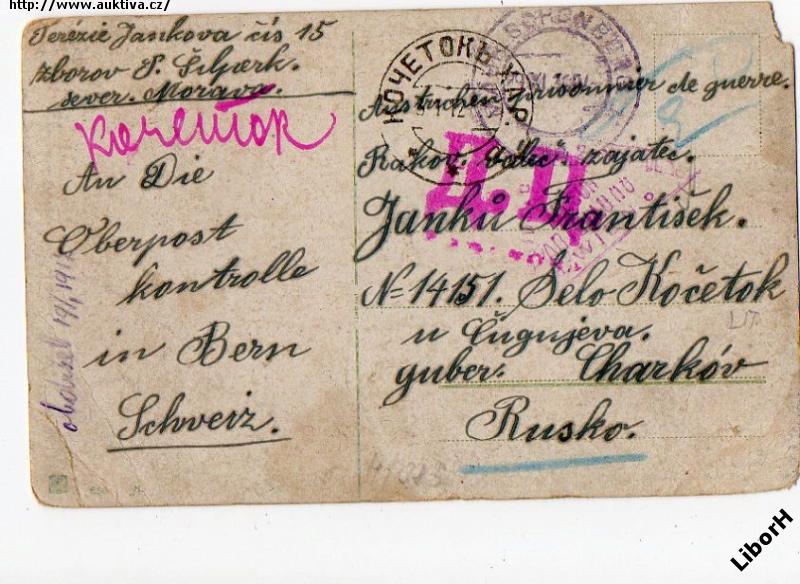 http://www.auktiva.cz/
Terézie Jankova čís 15
Zborov P. Šilperk.
sever. Morava.
An Die
Oberpost
kontrolle
in Bern
Schweiz.
КОЧЕТОКЪ ХАР.
Austrichen prisonnier de guerre.
Rakov. váleč. zajatec.
Д.Ц
Janků František.
N= 14151. Selo Kočetok
u Čugujeva.
guber. Charkóv
Rusko.
LiborH